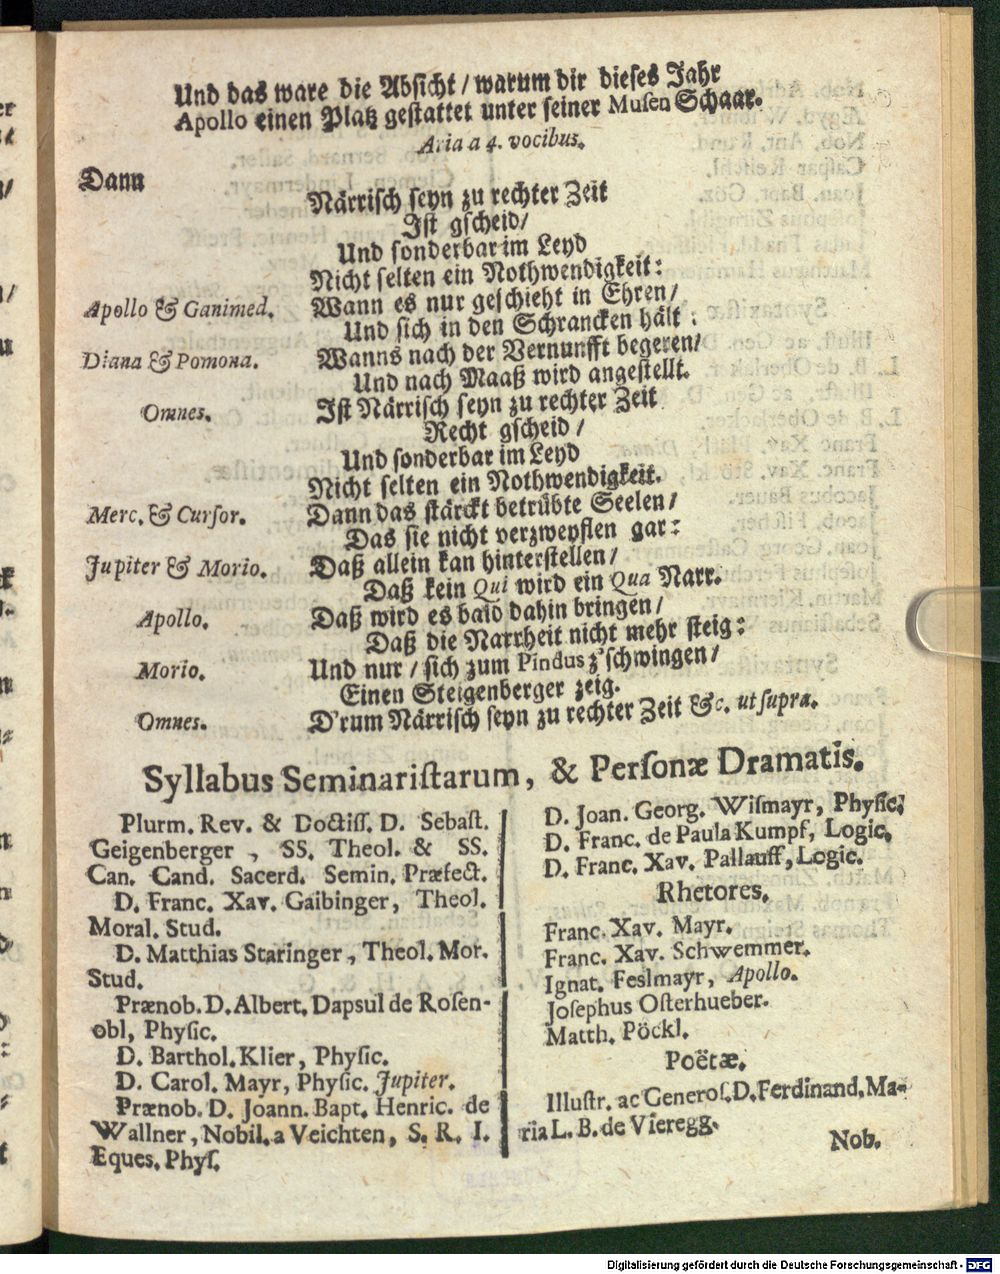 Und das ware die Absicht / warum dir dieses Jahr
Apollo einen Platz gestattet unter seiner Musen Schaar.
Aria a 4. vocibus.
Dann
Närrisch seyn zu rechter Zeit
Ist gscheid /
Und sonderbar im Leyd
Nicht selten ein Nothwendigkeit:
Apollo & Ganimed. Wann es nur geschieht in Ehren /
Und sich in den Schrancken hält :
Diana & Pomona. Wanns nach der Vernunfft begeren /
Und nach Maaß wird angestellt.
Omnes. Ist Närrisch seyn zu rechter Zeit
Recht gscheid /
Und sonderbar im Leyd
Nicht selten ein Nothwendigkeit.
Merc. & Cursor. Dann das stärckt betrübte Seelen /
Das sie nicht verzweyflen gar :
Jupiter & Morio. Daß allein kan hinterstellen /
Daß kein Qui wird ein Qua Narr.
Apollo. Daß wird es bald dahin bringen /
Daß die Narrheit nicht mehr steig :
Morio. Und nur / sich zum Pindus z'schwingen /
Einen Steigenberger zeig.
Omnes. D'rum Närrisch seyn zu rechter Zeit &c. ut supra.
Syllabus Seminaristarum, & Personæ Dramatis.
Plurm. Rev. & Doctiss. D. Sebast.
Geigenberger, SS. Theol. & SS.
Can. Cand. Sacerd. Semin. Præfect.
D. Franc. Xav. Gaibinger, Theol.
Moral. Stud.
D. Matthias Staringer, Theol. Mor.
Stud.
Prænob. D. Albert. Dapsul de Rosen-
obl, Physic.
D. Barthol. Klier, Physic.
D. Carol. Mayr, Physic. Jupiter.
Prænob. D. Joann. Bapt. Henric. de
Wallner, Nobil. a Veichten, S. R. I.
Eques. Phys.
D. Joan. Georg. Wismayr, Physic.
D. Franc. de Paula Kumpf, Logic.
D. Franc. Xav. Pallauff, Logic.
Rhetores.
Franc. Xav. Mayr.
Franc. Xav. Schwemmer.
Ignat. Feslmayr, Apollo.
Josephus Osterhueber.
Matth. Pöckl.
Poëtæ.
Illustr. ac Generos. D. Ferdinand. Ma-
ria L. B. de Vieregg.
Nob.
Digitalisierung gefördert durch die Deutsche Forschungsgemeinschaft - DFG